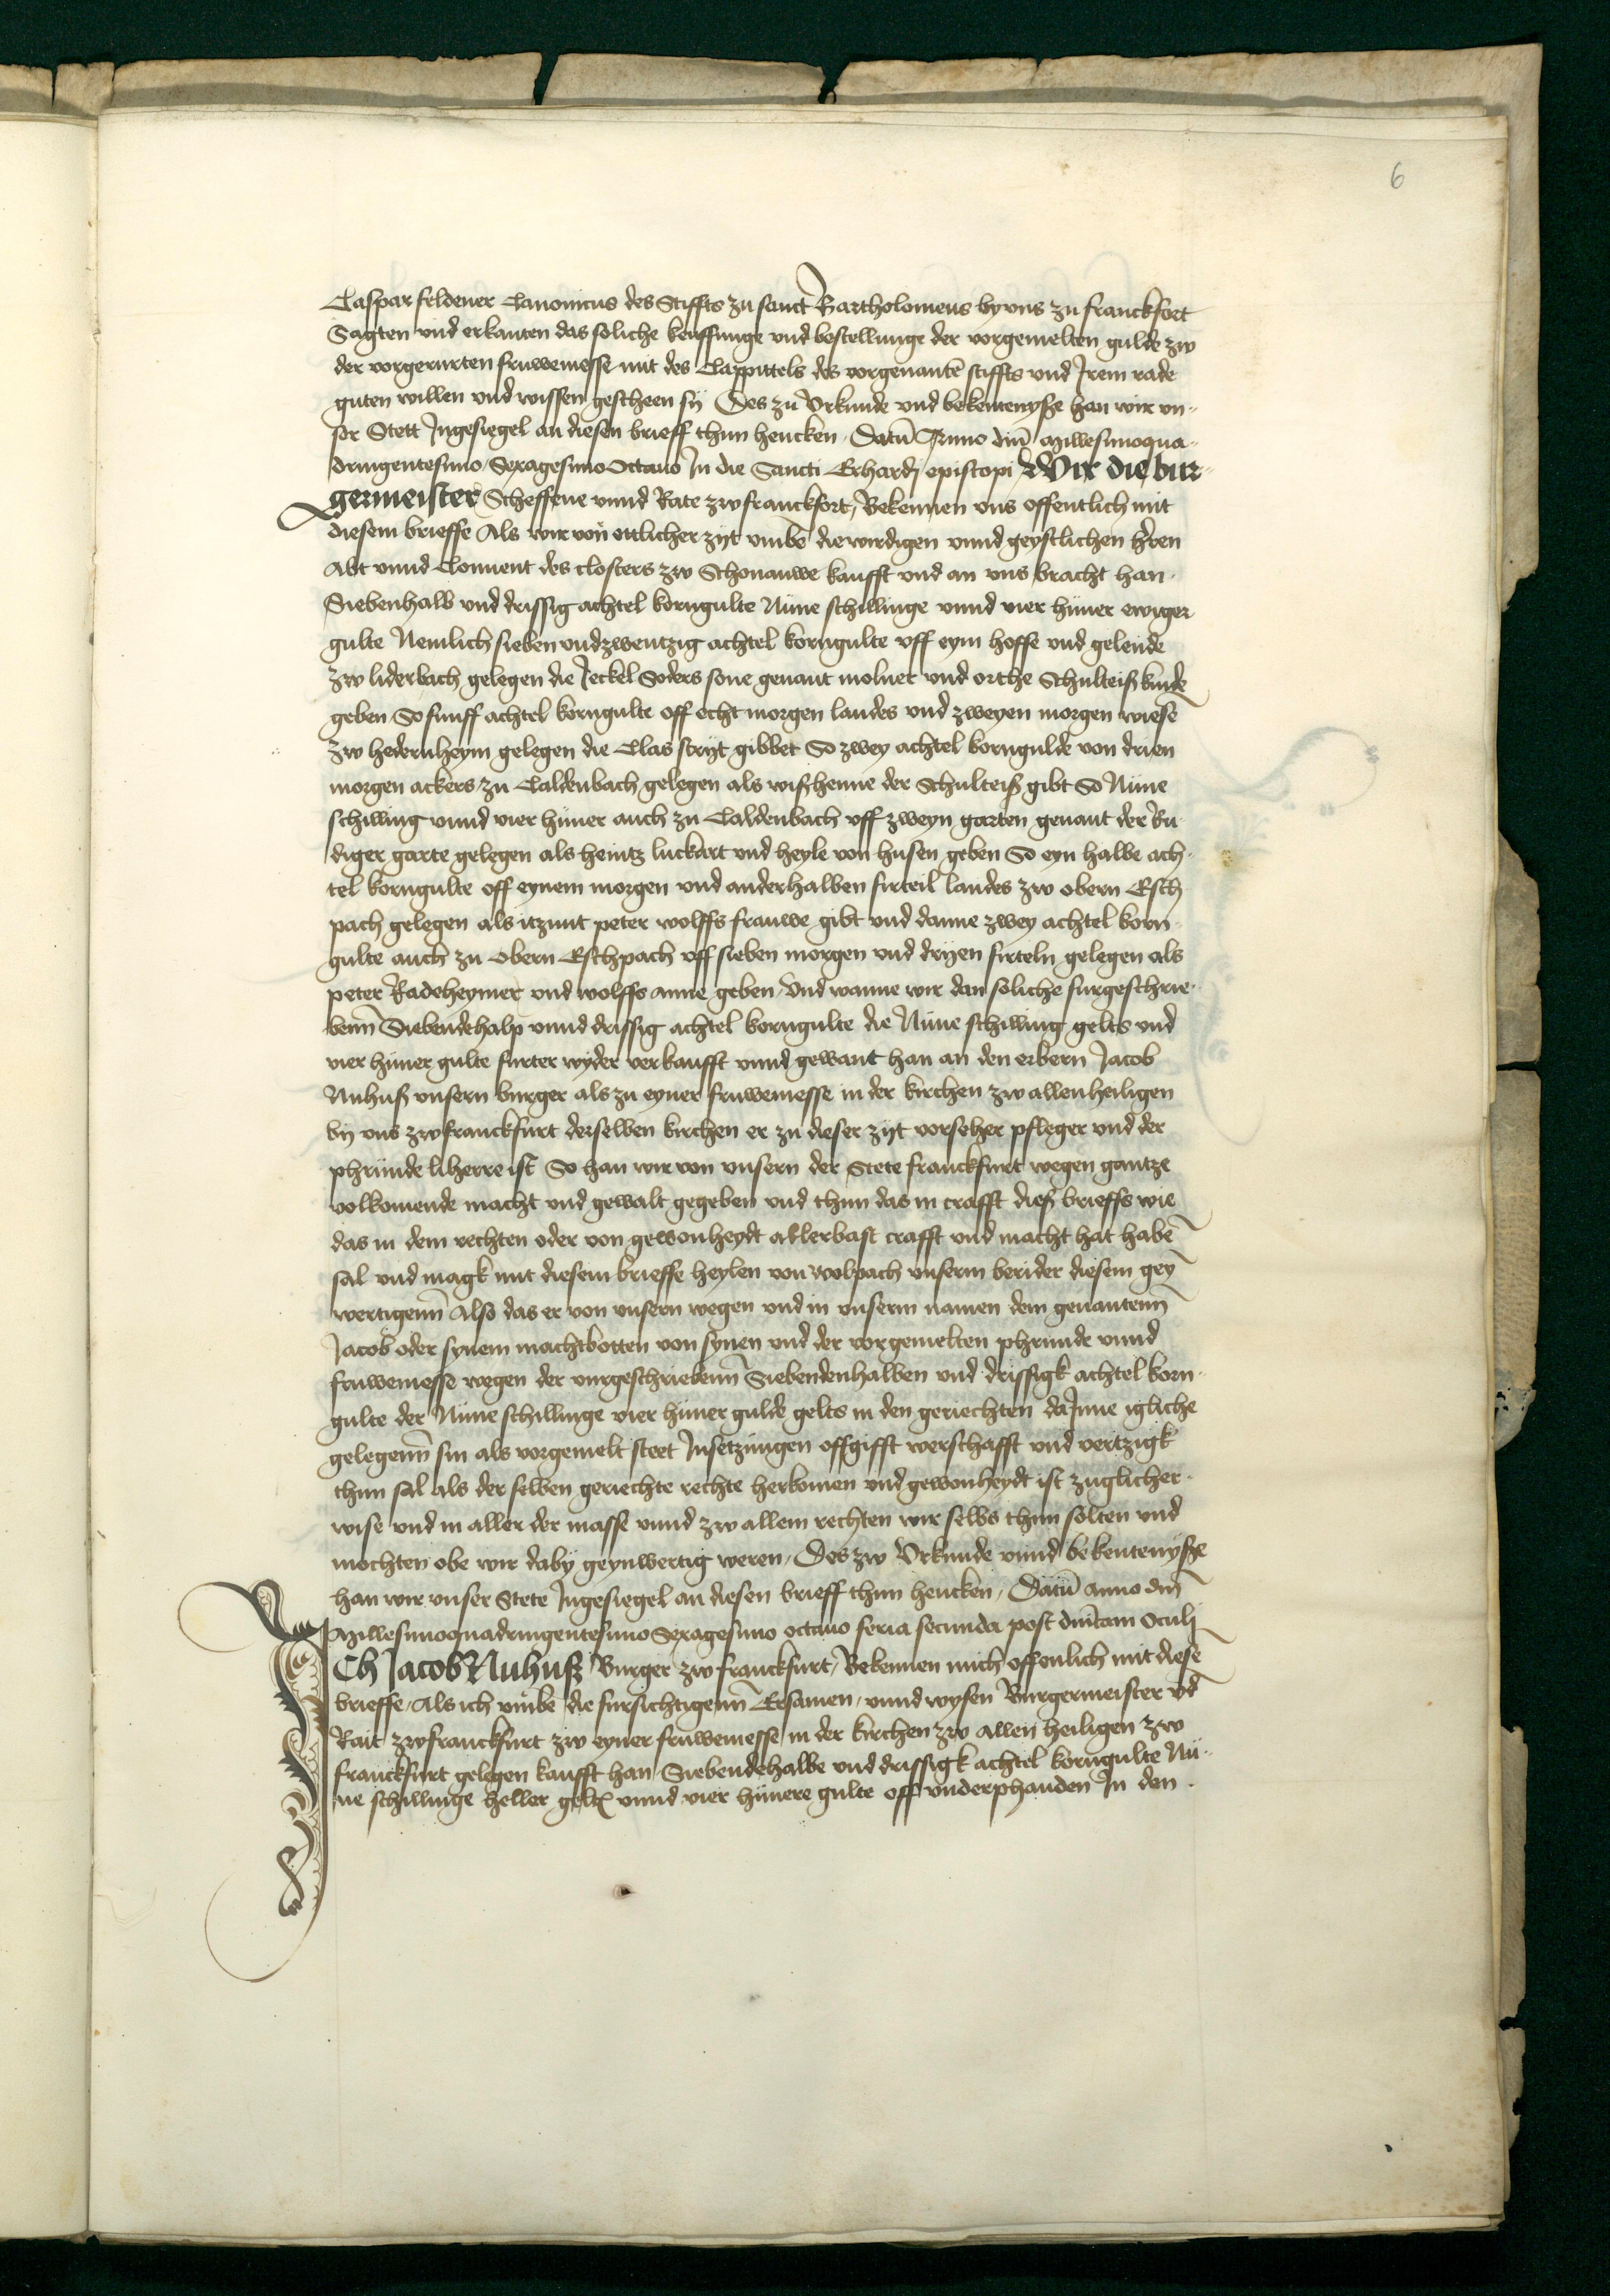 6
Caspar feldener Canonicus des Stiffts zu sanct Bartholomeus by vns zu franckfort
Sagten vnd erkanten das soliche keuffunge vnd bestellunge der vorgemelten gulde zw
der vorgerurten fruwemesse mit des Cappittels des vorgenantē stiffts vnd Jrem rade
guten willen vnd wissen gescheen sy Des zu Vrkunde vnd bekentenyße han wir vn-
ser Stett Jngesiegel an diesen brieff thun hencken, Datū Anno dm̄ Millesimoqua-
dringentesimo Sexagesimo Octauo Jn die Sancti Erhardj episcopi Wir die bur-
germeister Scheffene vnnd Rate zw franckfort, Bekennen vns offentlich mit
diesem brieffe Als wir von ettlicher zyt vmbe die wirdigen vnnd geystlichen hren
Abt vnnd Conuent des closters zw Schonauwe kaufft vnd an vns bracht han
Siebenhalb vnd drissig achtel korngulte Nüne schillinge vnnd vier hüner ewiger
gulte Nemlich sieben vndzwentzig achtel korngulte vff eym hoffe vnd gelende
zw liderbach gelegen die Jeckel Soders sone genant molner vnd orthe Schulteiß kinde
geben So funff achtel korngulte off echt morgen landes vnd zweyen morgen wiese
zw hedernheym gelegen die Clas stryt gibbet So zwey achtel korngulde von drien
morgen ackers zu Caldenbach gelegen als wißhenne der Schulteiß gibt So Nüne
schilling vnnd vier hüner auch zu Caldenbach vff zweyn garten genant der Ru-
diger garte gelegen als heintz luckart vnd heyle von husen geben So eyn halbe ach-
tel korngulte off eynem morgen vnd anderhalben firteil landes zw obern Esch
pach gelegen als itzunt peter wolffs frauwe gibt vnd danne zwey achtel korn
gulte auch zu obern Eschpach vff sieben morgen vnd dryen firteln gelegen als
peter Radeheymer vnd wolffs anne geben, Vnd wanne wir dan soliche furgeschrie-
benn̄ Siebendehalp vnnd drissig achtel korngulte die Nüne schilling gelts vnd
vier hüner gulte furter wyder verkaufft vnnd gewant han an den erbern Jacob
Nuhuß vnsern burger als zu eyner fruwemesse in der kirchen zw allenheiligen
by vns zw franckfurt derselben kirchen er zu dieser zyt vorseher pfleger vnd der
phründe liherre ist So han wir von vnsern der Stete franckfurt wegen gantze
volkomende macht vnd gewalt gegeben vnd thun das in crafft dieß brieffs wie
das in dem rechten oder von gewonheydt allerbast crafft vnd macht hat habē
sal vnd magk mit diesem brieffe heylen von wolpach vnserm berider diesem gey
wertigenn̄ Also das er von vnsern wegen vnd in vnserm namen dem genantenn̄
Jacob oder synem machtbotten von synen vnd der vorgemelten phrunde vnnd
fruwemesse wegen der vurgeschriebenn̄ Siebendenhalben vnd drissigk achtel korn-
gulte der Nüne schillinge vier hüner gulde gelts in den geriechten da Jnne igliche
gelegenn̄ sin als vorgemelt steet Jnsetzungen offgifft werschafft vnd vertzigk
thun sal als der selben geriechte rechte herkomen vnd gewonheydt ist zuglicher-
wise vnd in aller der masse vnnd zw allem rechten wir selbs thun solten vnd
mochten obe wir daby geynwertig weren, Des zw Vrkunde vnnd bekentenyße
han wir vnser Stete Jngesiegel an diesen brieff thun hencken, Datū anno dm̄
Millesimoquadringentesimo Sexagesimo octauo feria secunda post dm̄cam Oculj
JCh Jacob Nuhuß Burger zw franckfurt, Bekennen mich offenlich mit diesē
brieffe, Als ich vmbe die fursichtigenn̄ Ersamen, vnnd wysen Burgermeister vd
Rait zw franckfurt zw eyner fruwemesse in der kirchen zw allen heiligen zw
franckfurt gelegen kaufft han Siebendehalbe vnd drissigk achtel korngulte Nü-
ne schillinge heller gelts vnnd vier hünere gulte off vnderphanden Jn den